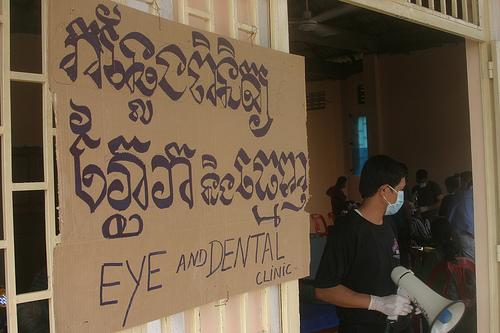 កន្លែងពិនិត្យ
និងធ្មេញ
EYE AND DENTAL
CLINIC